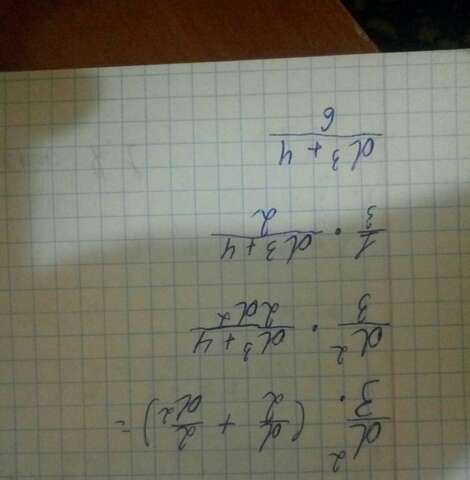 a²/3 · (a/2 + 2/a²) =
a²/3 · (a³+4)/(2a²)
1/3 · (a³+4)/2
(a³+4)/6